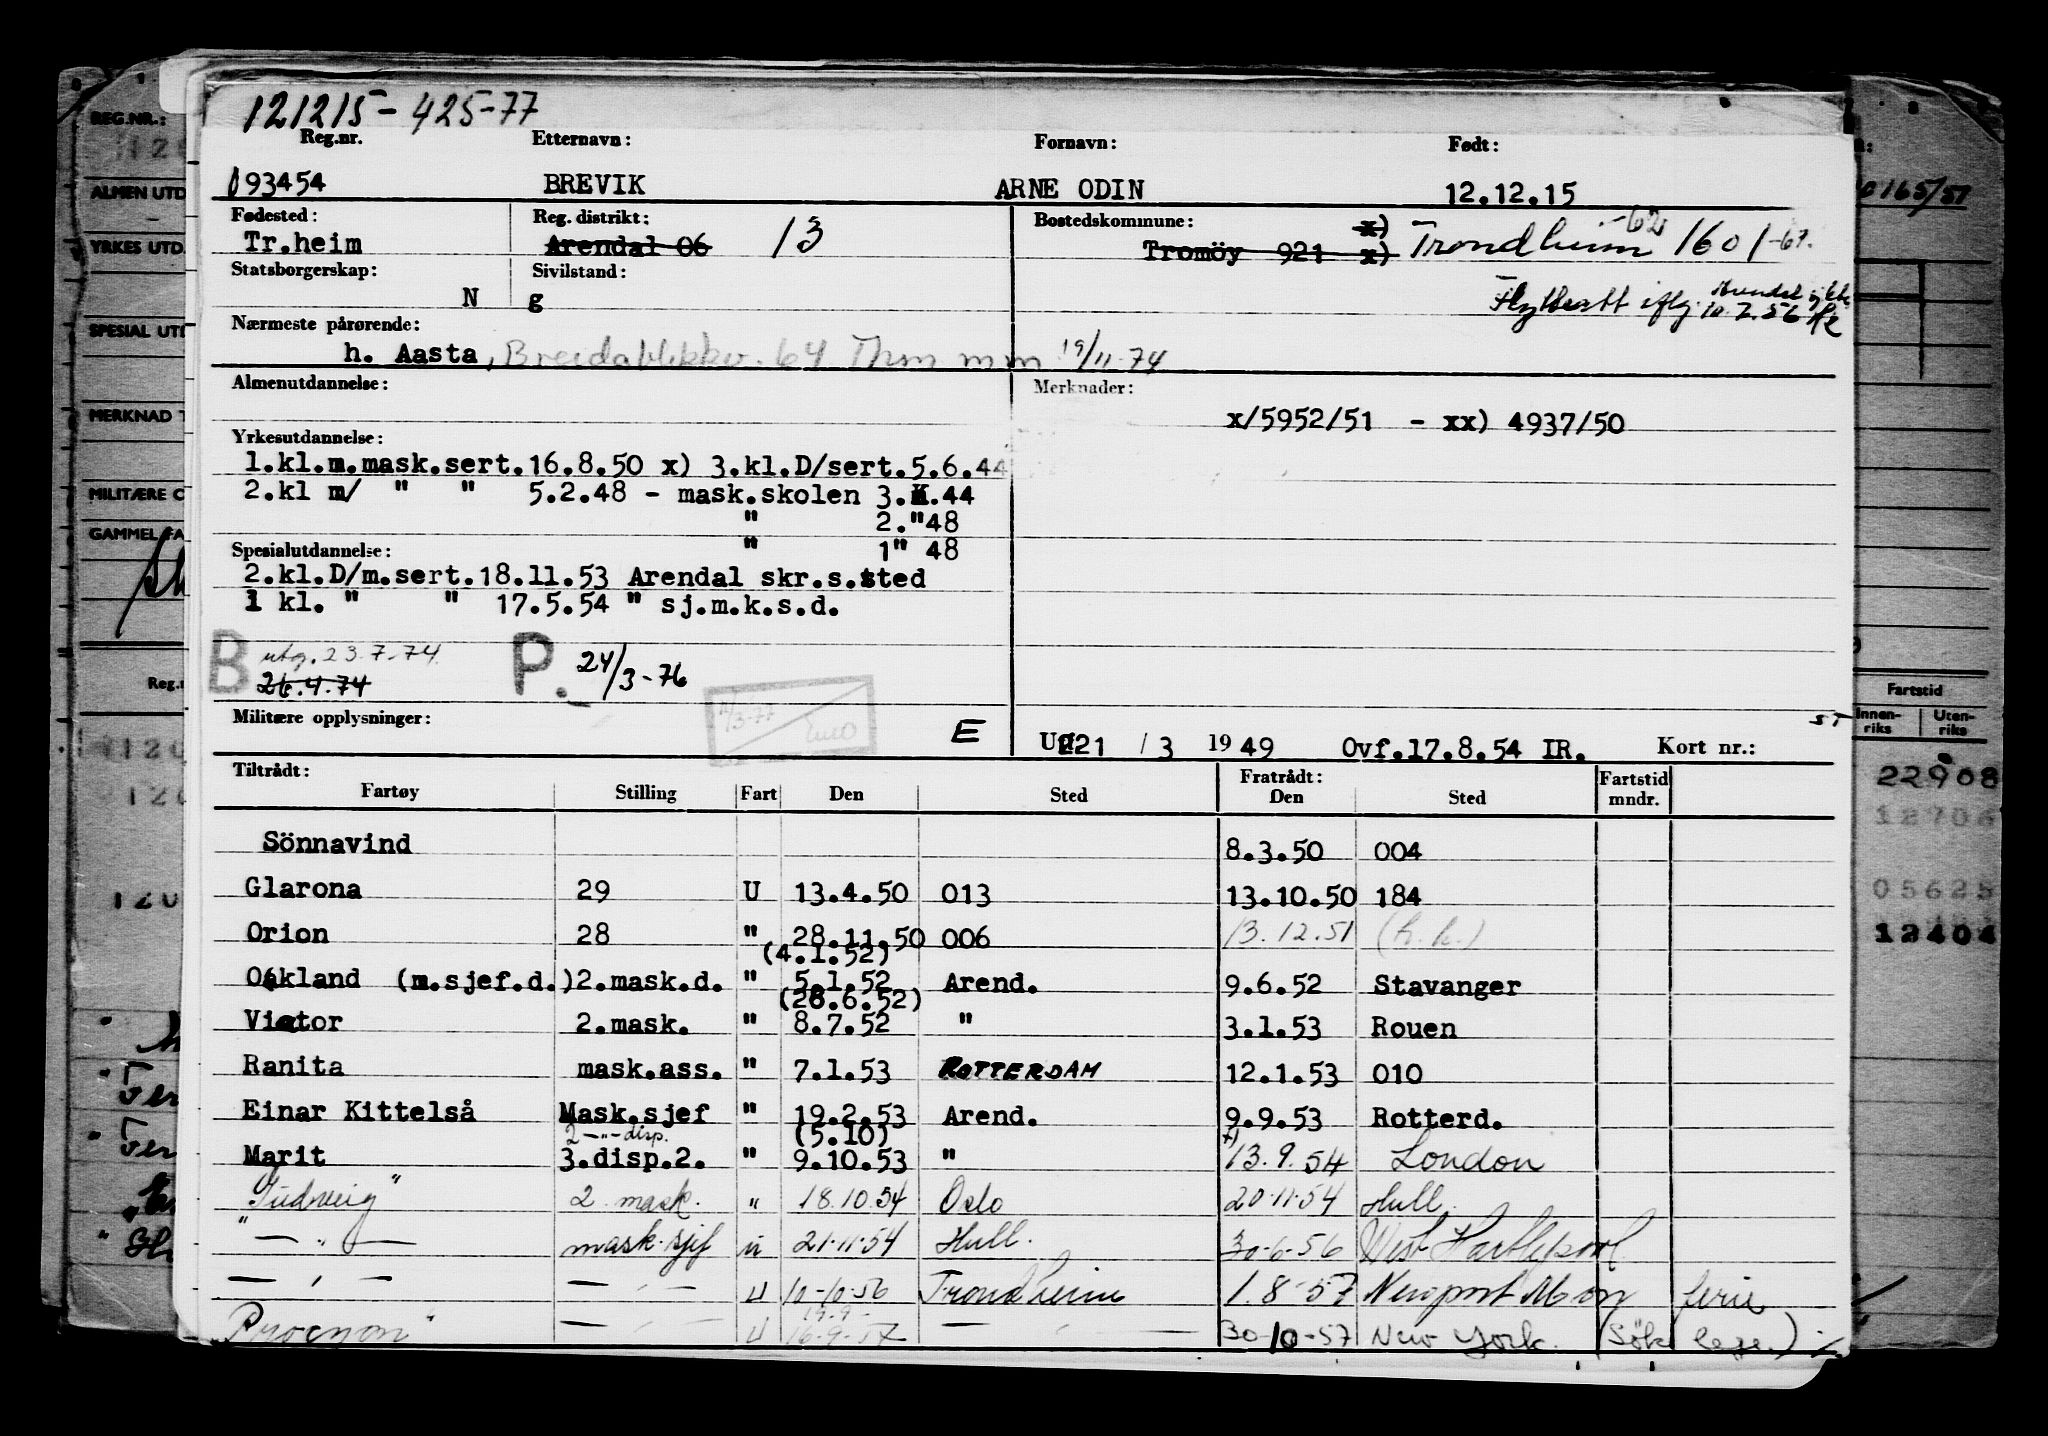 121215-425-77
Reg.nr. Etternavn: Fornavn: Født:
093454 BREVIK ARNE ODIN 12.12.15
Fødested: Reg. distrikt: Bostedskommune: x) -62
Tr.heim Arendal 06 13 Tromöy 921 x) Trondheim 1601 -67.
Statsborgerskap: Sivilstand:
N g
10.7.56
Nærmeste pårørende:
h. Aasta, Breidablikkv. 64 Thm m m 19/11-74
Almenutdannelse: Merknader:
x/5952/51 - xx) 4937/50
Yrkesutdannelse:
1.kl.m.mask.sert.16.8.50 x) 3.kl.D/sert.5.6.44
2.kl m/ " " 5.2.48 - mask.skolen 3.K.44
" 2."48
Spesialutdannelse: " 1" 48
2.kl.D/m.sert.18.11.53 Arendal skr.s.sted
1 kl. " " 17.5.54 " sj.m.k.s.d.
B utg. 23.7.74. P. 24/3-76
26.4.74
Militære opplysninger: E 21 / 3 1949 Ovf.17.8.54 IR. Kort nr.:
Tiltrådt: Fratrådt: Fartstid
Fartøy Stilling Fart Den Sted Den Sted mndr.
Sönnavind 8.3.50 004
Glarona 29 U 13.4.50 013 13.10.50 184
Orion 28 " 28.11.50 006 13.12.51 (h.k.)
(4.1.52)
Oakland (m.sjef.d.) 2.mask.d. " 5.1.52 Arend. 9.6.52 Stavanger
(28.6.52)
Victor 2.mask. " 8.7.52 " 3.1.53 Rouen
Ranita mask.ass. " 7.1.53 ROTTERDAM 12.1.53 010
Einar Kittelså Mask.sjef " 19.2.53 Arend. 9.9.53 Rotterd.
2 -"- disp. (5.10)
Marit 3.disp.2. " 9.10.53 " x) 13.9.54 London
"Gudveig" 2. mask. " 18.10.54 Oslo 20.11.54 Hull.
" — " — mask.sjef u 21.11.54 Hull. 30-6-56 West Hartlepool
— " — — " — U 10-10-56 Trondheim 1.8-57 Newport Mon ferie
19.9-
"Procyon" — " — U 16-9-57 — " — 30-10-57 New York. (Sök lege.) ./.
REG.NR.:
ALMEN UTD
YRKES UTD.
SPESIAL UTD
MERKNAD T
MILITÆRE O
GAMMEL FA
Reg.n
0165/51
Fartstid
Innen-riks Uten-riks
22908
12706
05625
12404